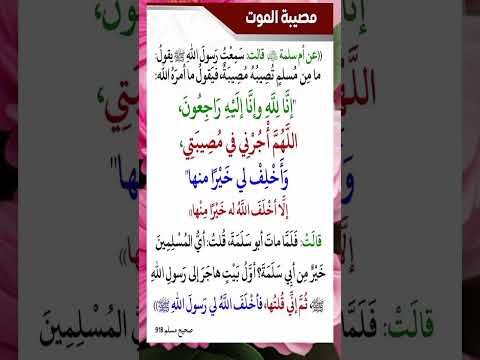 مصيبة الموت
((عن أم سلمة ﷺ قالت: سَمِعْتُ رَسولَ اللهِ ﷺ يقولُ:
ما مِن مُسلمٍ تُصِيبُهُ مُصِيبَةٌ، فَيَقولُ ما أمَرَهُ اللَّه:
"إنَّا لِلَّهِ وإنَّا إلَيْهِ رَاجِعُونَ،
اللَّهُمَّ أْجُرْنِي في مُصِيبَتِي،
وَأَخْلِفْ لي خَيْرًا منها"
إلَّا أخْلَفَ اللَّهُ له خَيْرًا مِنْها))
قالَتْ: فَلَمَّا ماتَ أبو سَلَمَةَ، قُلتُ: أيُّ المُسْلِمِينَ
خَيْرٌ مِن أبِي سَلَمَةَ؟ أوَّلُ بَيْتٍ هاجَرَ إلى رَسولِ اللهِ
ﷺ، ثُمَّ إنِّي قُلتُها، فأخْلَفَ اللَّهُ لي رَسولَ اللهِ ﷺ))
صحيح مسلم 918